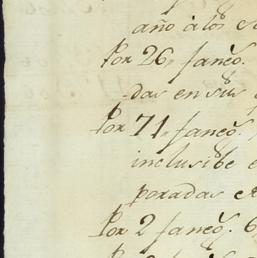 año à los
Por 26, faneg.
das en sus
Por 71, faneg.
inclusibe
poradas
Por 2 faneg. 6